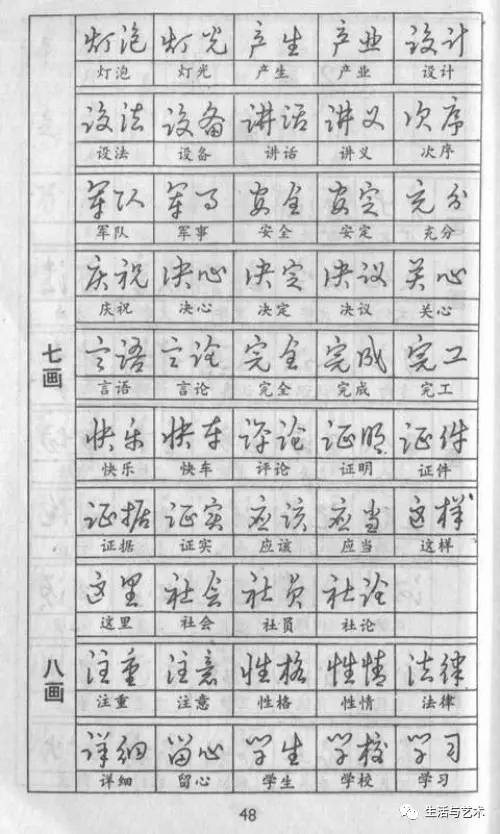 灯泡 灯光 产生 产业 设计
灯泡 灯光 产生 产业 设计
设法 设备 讲话 讲义 次序
设法 设备 讲话 讲义 次序
军队 军事 安全 安定 充分
军队 军事 安全 安定 充分
庆祝 决心 决定 决议 关心
庆祝 决心 决定 决议 关心
七画
言语 言论 完全 完成 完工
言语 言论 完全 完成 完工
快乐 快车 评论 证明 证件
快乐 快车 评论 证明 证件
证据 证实 应该 应当 这样
证据 证实 应该 应当 这样
这里 社会 社员 社论
这里 社会 社员 社论
八画
注重 注意 性格 性情 法律
注重 注意 性格 性情 法律
详细 留心 学生 学校 学习
详细 留心 学生 学校 学习
48
生活与艺术